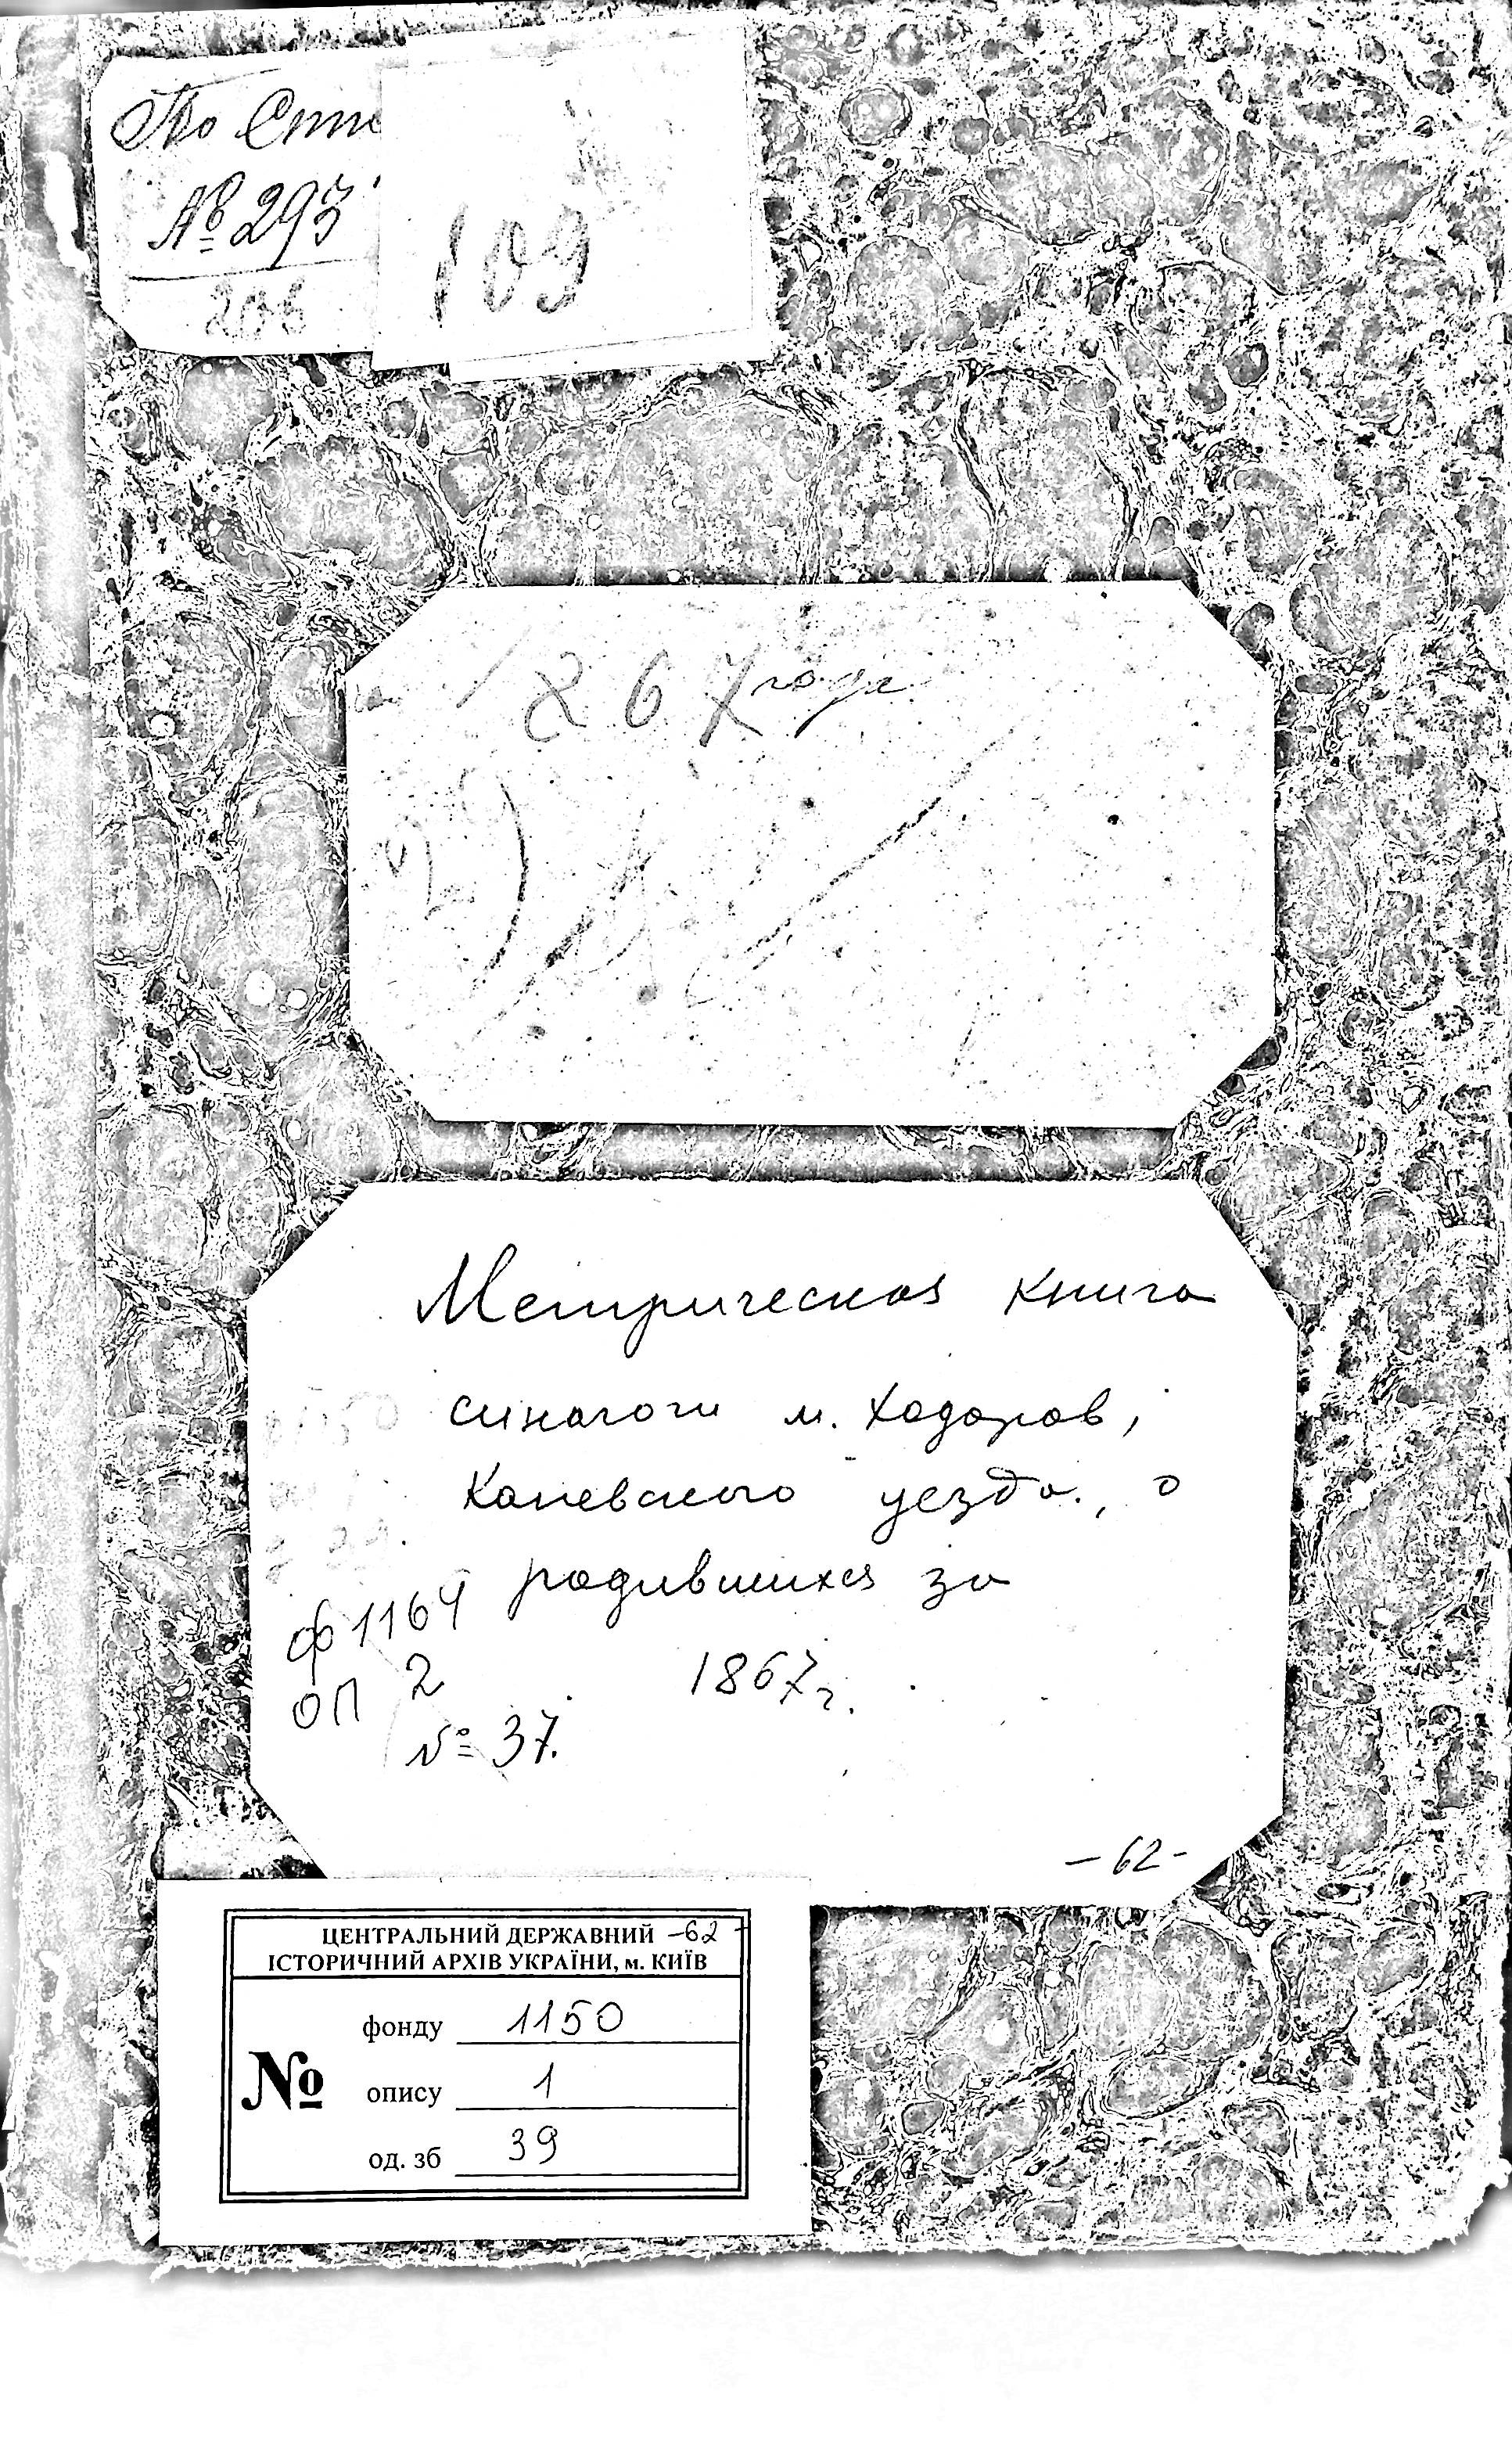 По Спи
№ 293
206
109
1867 года
Метрическая книга
синагоги м. Ходоров,
Каневского уезда, о
родившихся за
1867 г.
ф 1164
оп 2
№ 37.
-62-
ЦЕНТРАЛЬНИЙ ДЕРЖАВНИЙ -62-
ІСТОРИЧНИЙ АРХІВ УКРАЇНИ, м. КИЇВ
№
фонду 1150
опису 1
од. зб 39